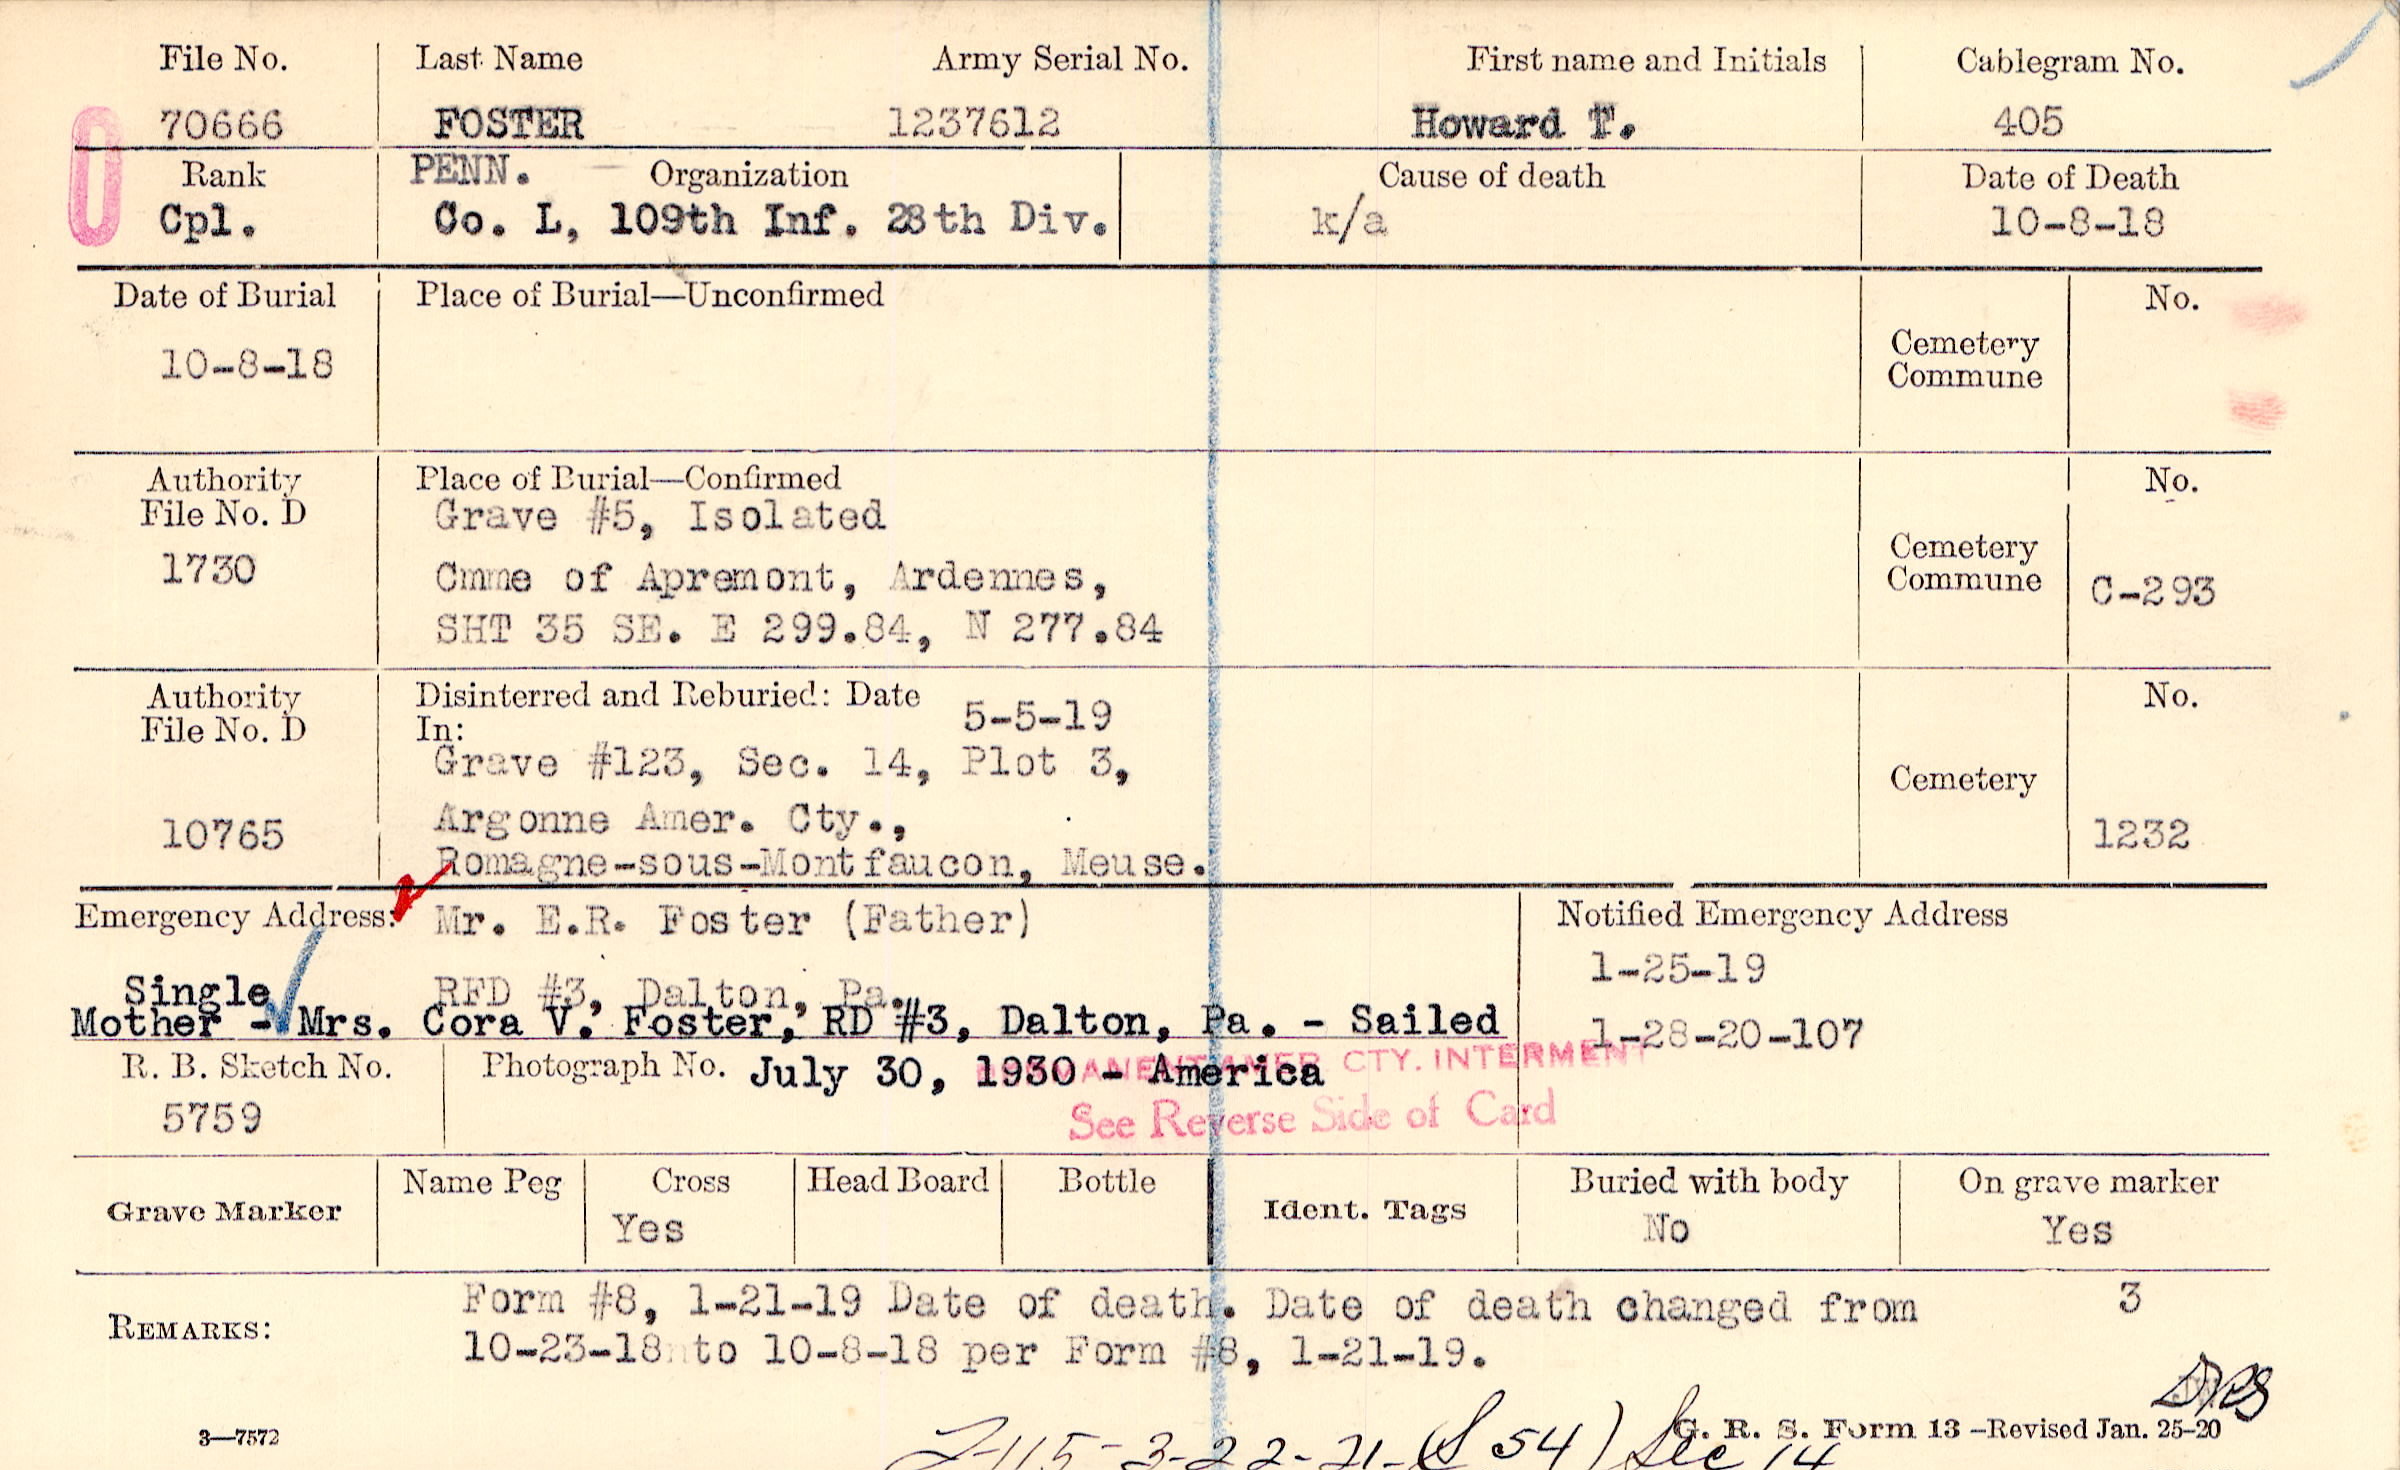 File No. Last Name Army Serial No. First name and Initials Cablegram No.
70666 FOSTER 1237612 Howard T. 405
Rank PENN. Organization Cause of death Date of Death
Cpl. Co. L, 109th Inf. 28th Div. k/a 10-8-18
Date of Burial Place of Burial—Unconfirmed No.
10-8-18 Cemetery
Commune
Authority Place of Burial—Confirmed No.
File No. D Grave #5, Isolated
1730 Cmme of Apremont, Ardennes, Cemetery
Commune C-293
SHT 35 SE. E 299.84, N 277.84
Authority Disinterred and Reburied: Date 5-5-19 No.
File No. D In:
Grave #123, Sec. 14, Plot 3, Cemetery
10765 Argonne Amer. Cty., 1232
Romagne-sous-Montfaucon, Meuse.
Emergency Address: Mr. E.R. Foster (Father) Notified Emergency Address
1-25-19
Single RFD #3, Dalton, Pa.
Mother - Mrs. Cora V. Foster, RD #3, Dalton, Pa. - Sailed 1-28-20-107
R. B. Sketch No. Photograph No. July 30, 1930 - America
AMER CTY. INTERMENT
5759 See Reverse Side of Card
Grave Marker Name Peg Cross Head Board Bottle Ident. Tags Buried with body On grave marker
Yes No Yes
REMARKS: Form #8, 1-21-19 Date of death. Date of death changed from 3
10-23-18 to 10-8-18 per Form #8, 1-21-19.
3—7572 G. R. S. Form 13 -Revised Jan. 25-20
3-22-21-(S 54) Sec 14